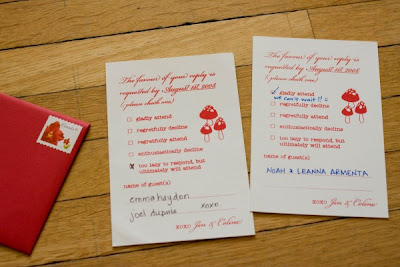 The favour of your reply is
requested by August 1st, 2008
(please check one)
gladly attend
regretfully decline
regretfully attend
enthusiastically decline
x too lazy to respond, but
ultimately will attend
name of guest(s)
emma haydon
joel xoxo
xoxo Jen & Celine
The favour of your reply is
requested by August 1st, 2008
(please check one)
✓ gladly attend
we can't wait!! =
regretfully decline
regretfully attend
enthusiastically decline
too lazy to respond, but
ultimately will attend
name of guest(s)
NOAH & LEANNA ARMENTA
xoxo Jen & Celine